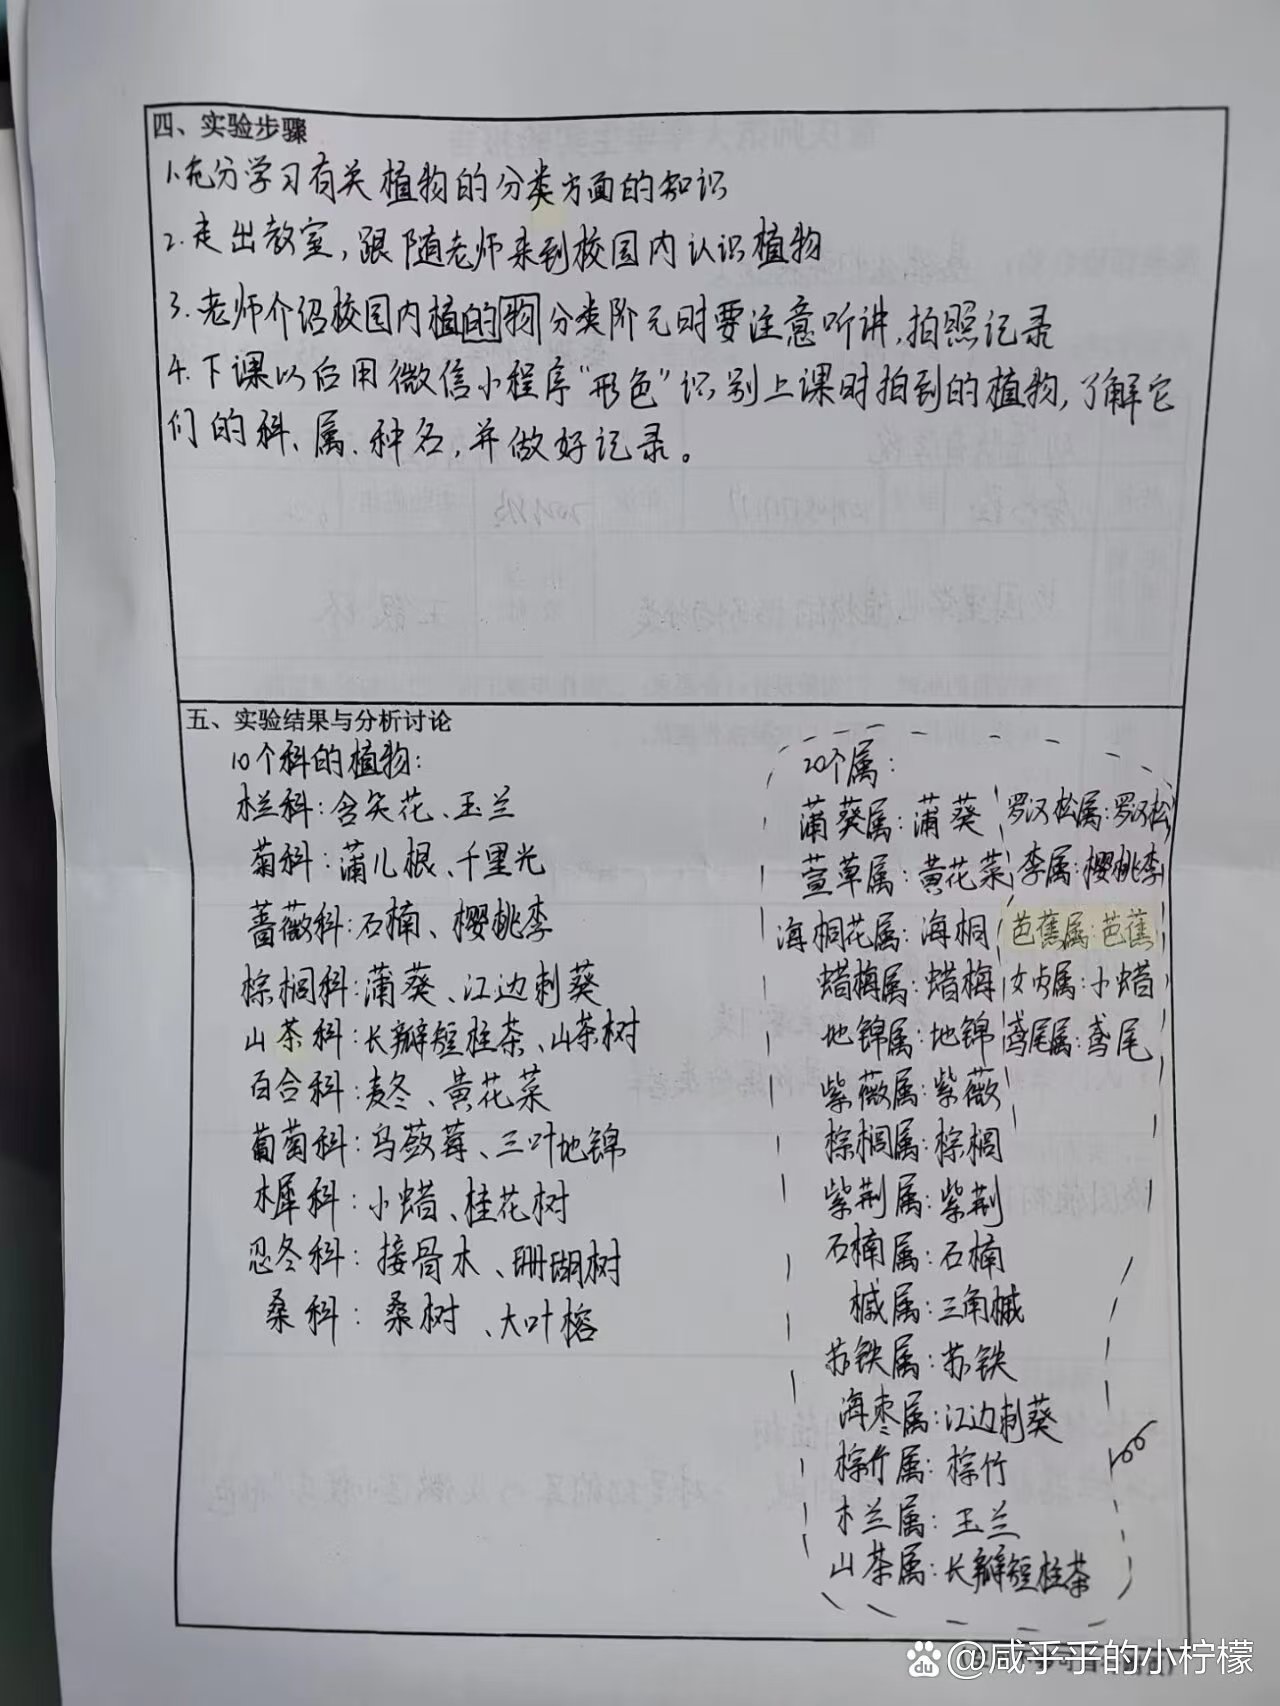 四、实验步骤
1.充分学习有关植物的分类方面的知识
2.走出教室,跟随老师来到校园内认识植物
3.老师介绍校园内植的物分类阶元时要注意听讲,拍照记录
4.下课以后用微信小程序“形色”识别上课时拍到的植物,了解它
们的科、属、种名,并做好记录。
五、实验结果与分析讨论
10个科的植物:
木兰科:含笑花、玉兰
菊科:蒲儿根、千里光
蔷薇科:石楠、樱桃李
棕榈科:蒲葵、江边刺葵
山茶科:长瓣短柱茶、山茶树
百合科:麦冬、黄花菜
葡萄科:乌蔹莓、三叶地锦
木犀科:小蜡、桂花树
忍冬科:接骨木、珊瑚树
桑科:桑树、大叶榕
20个属:
蒲葵属:蒲葵
萱草属:黄花菜
海桐花属:海桐
蜡梅属:蜡梅
地锦属:地锦
紫薇属:紫薇
棕榈属:棕榈
紫荆属:紫荆
石楠属:石楠
槭属:三角槭
苏铁属:苏铁
海枣属:江边刺葵
棕竹属:棕竹
木兰属:玉兰
山茶属:长瓣短柱茶
罗汉松属:罗汉松
李属:樱桃李
芭蕉属:芭蕉
女贞属:小蜡
鸢尾属:鸢尾
100
du @咸乎乎的小柠檬